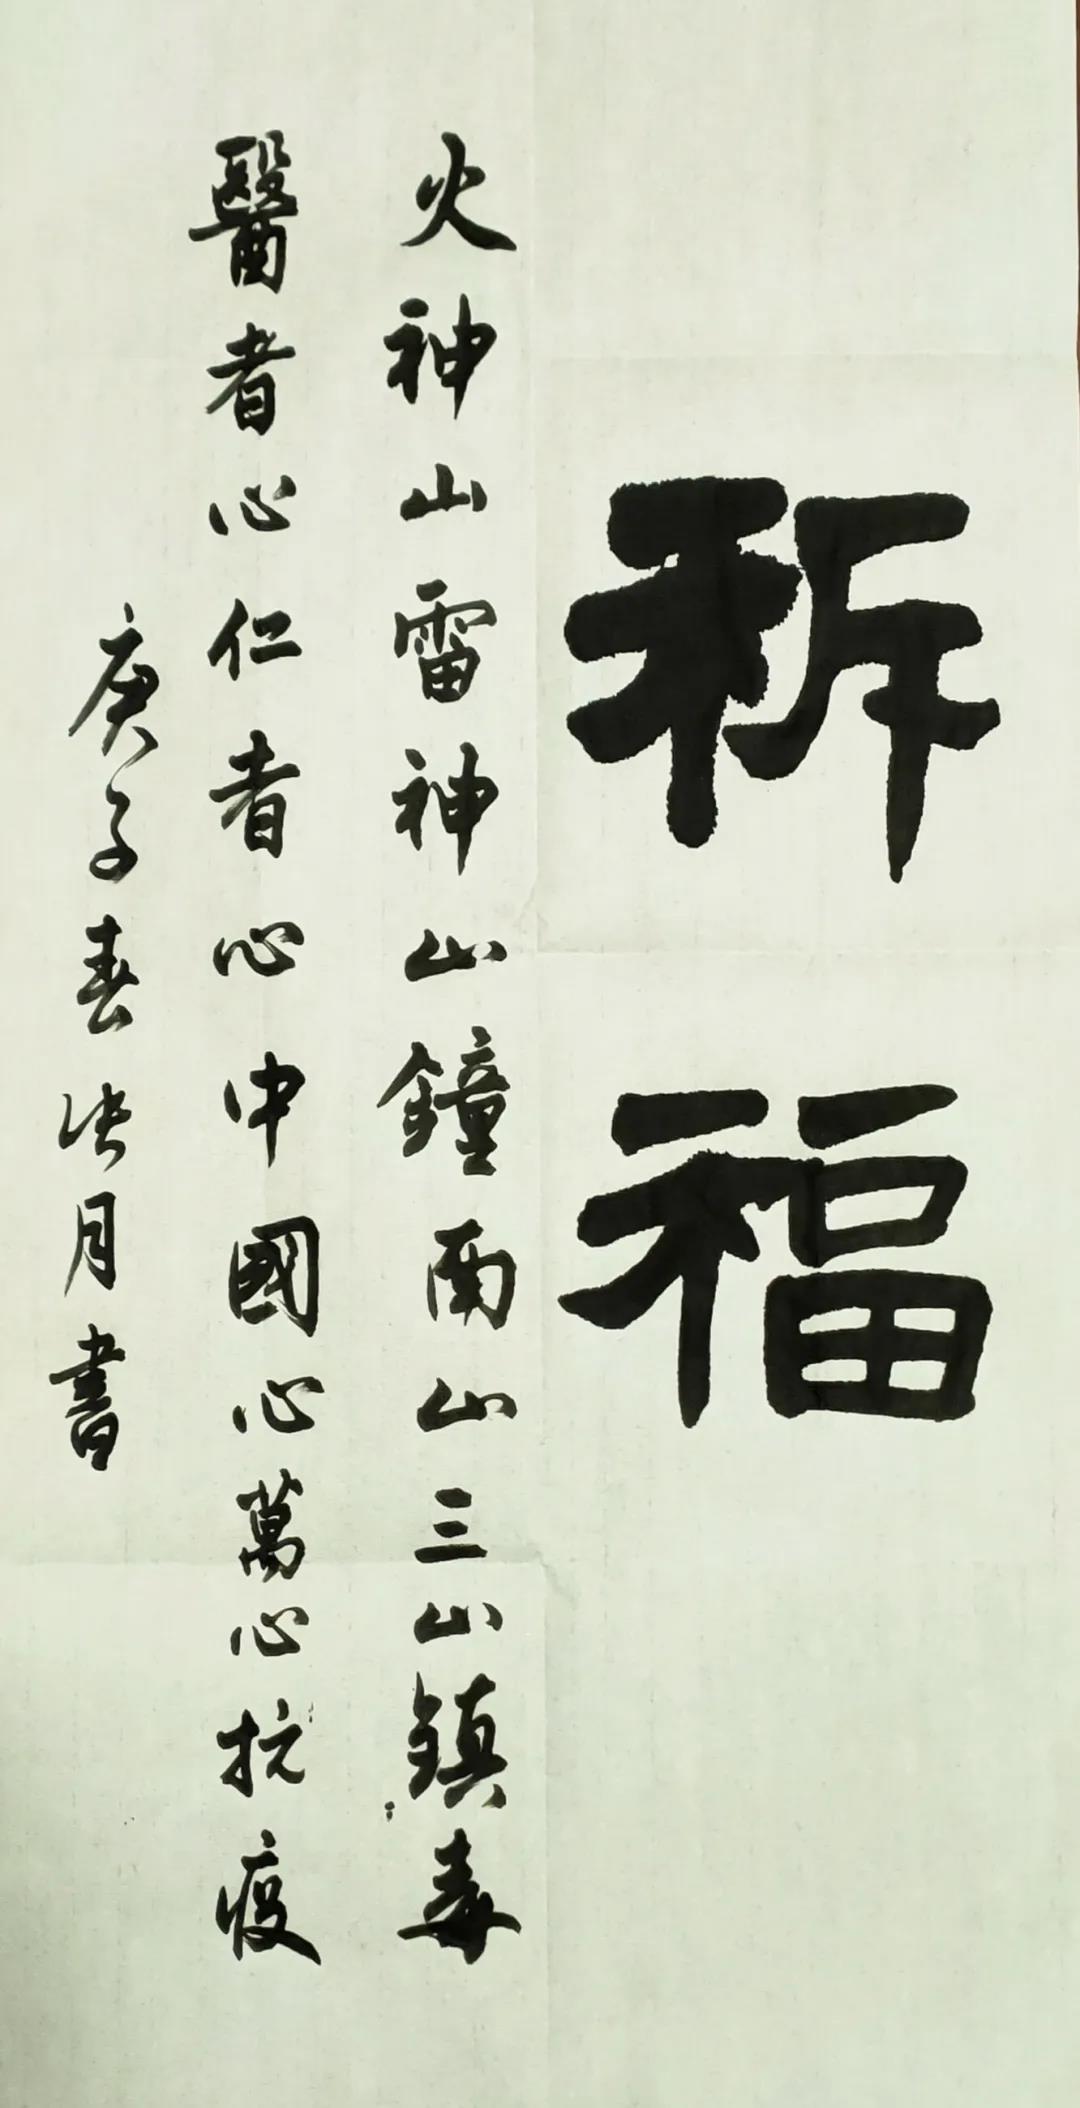 祈福
火神山雷神山鐘南山三山鎮毒
醫者心仁者心中國心萬心抗疫
庚子春张月書